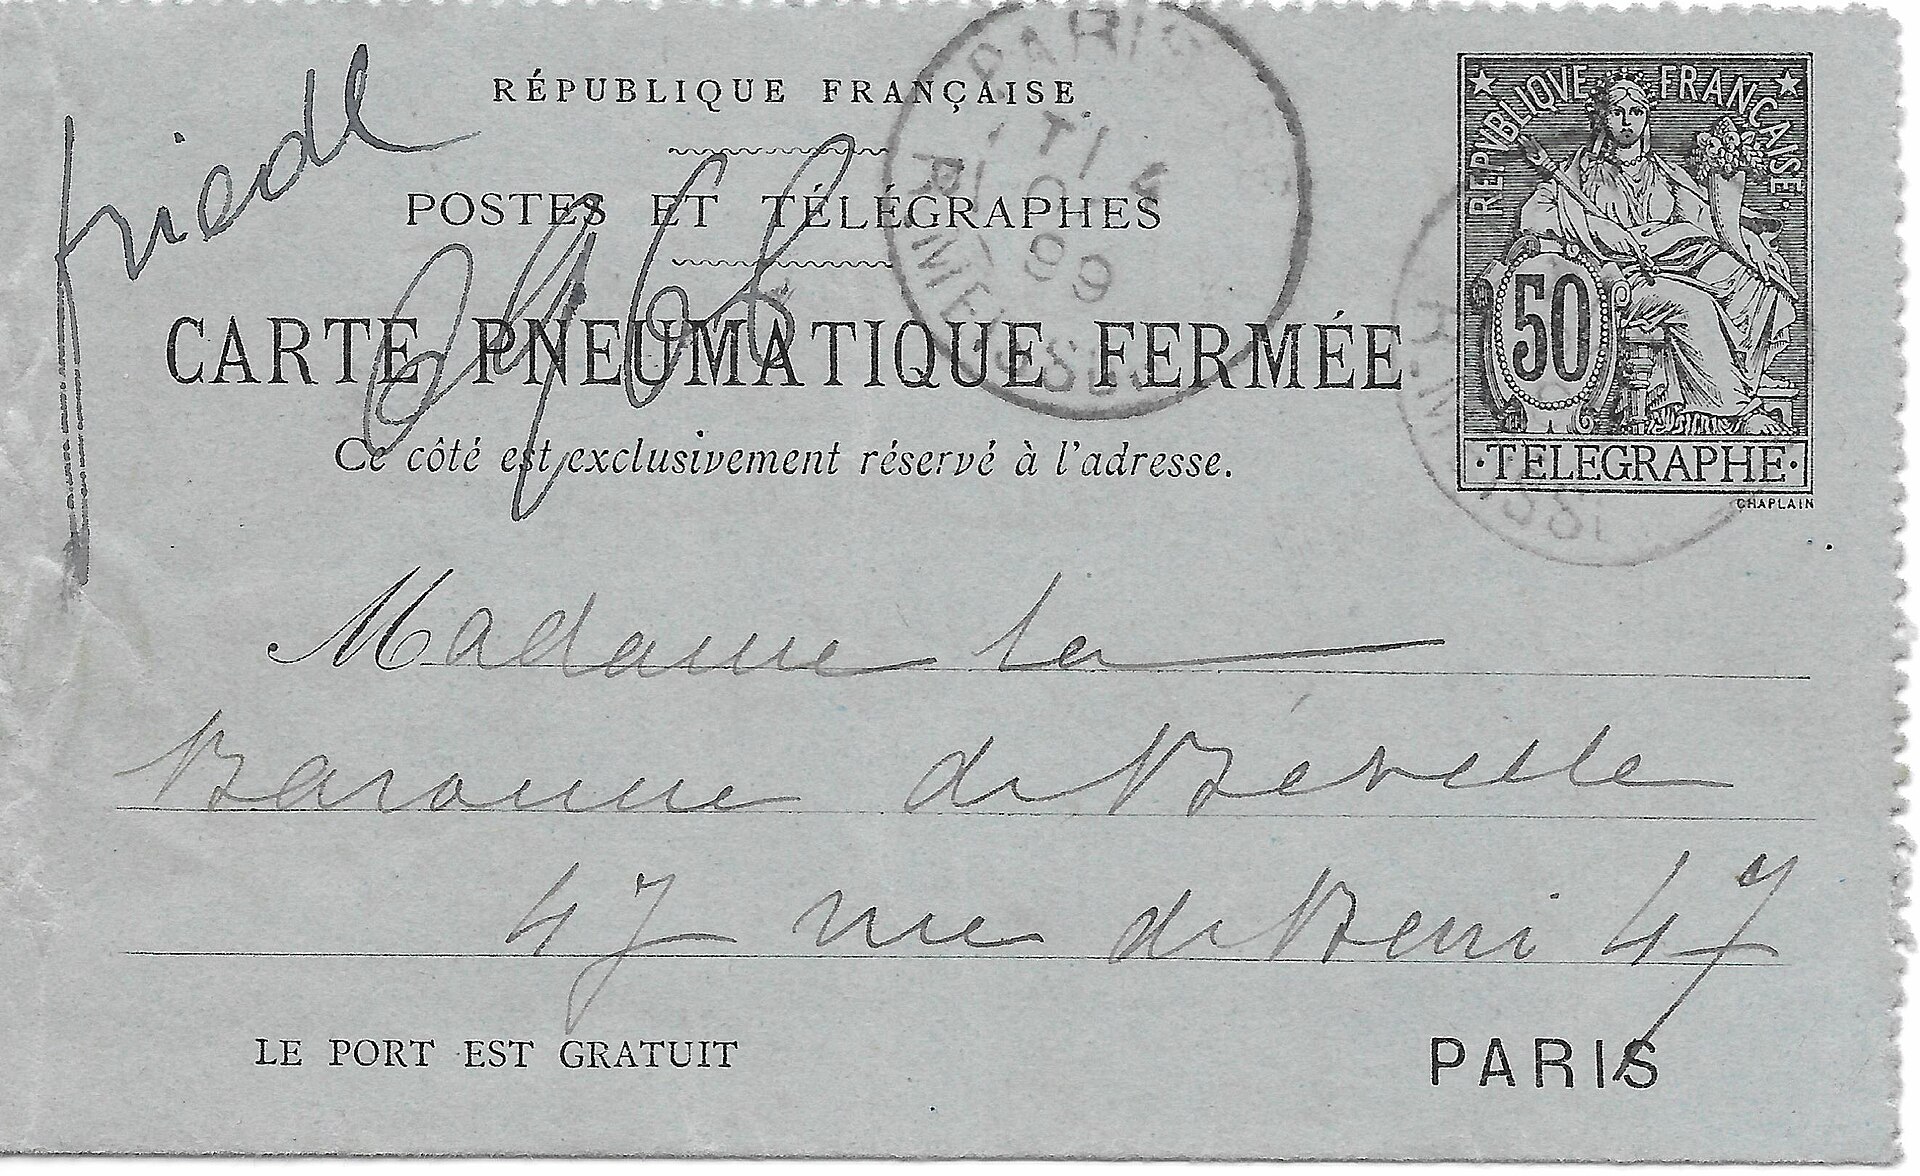 friedl
RÉPUBLIQUE FRANÇAISE
POSTES ET TÉLÉGRAPHES
CARTE PNEUMATIQUE FERMÉE
Ce côté est exclusivement réservé à l'adresse.
PARIS
99
REPVBLIQVE FRANÇAISE
50
TELEGRAPHE
CHAPLAIN
Madame la
Baronne de Béville
47 rue de Berri 47
LE PORT EST GRATUIT
PARIS